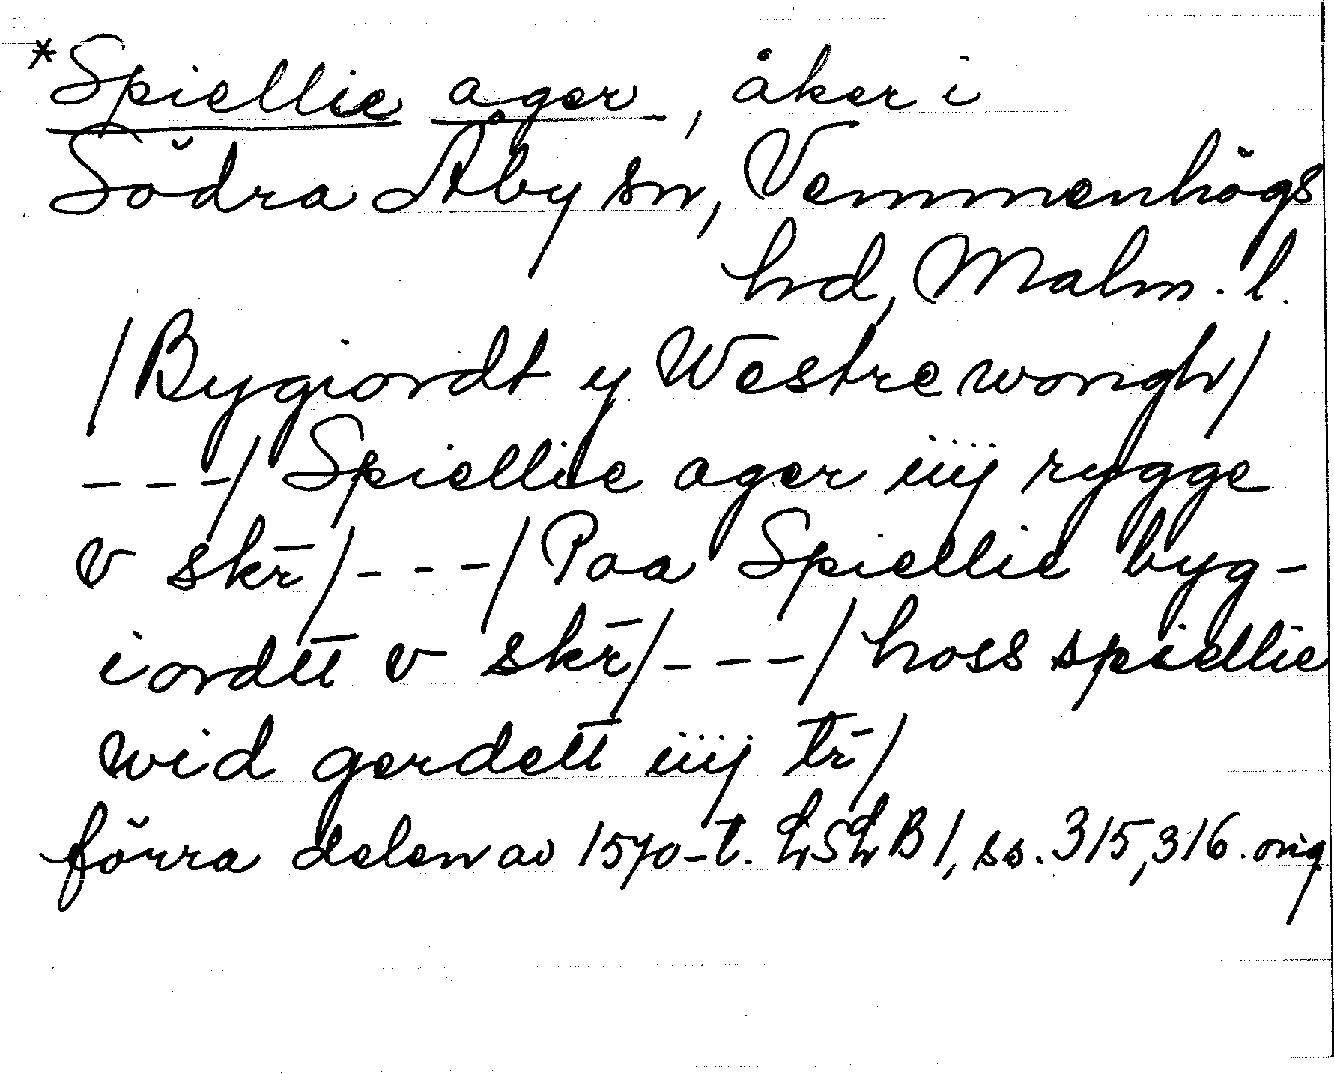 *Spiellie ager, åker i
Södra Åby sn, Vemmenhögs
hd, Malm. l.
/Bygiordt y Westre wongh/
---/Spiellie ager iiij rygge
v skr̄/---/Paa Spiellie byg-
iordtt v skr̄/---/hoss spiellie
wid gerdett iiij tr̄/
förra delen av 1570-t. LSLB 1, ss. 315, 316. orig